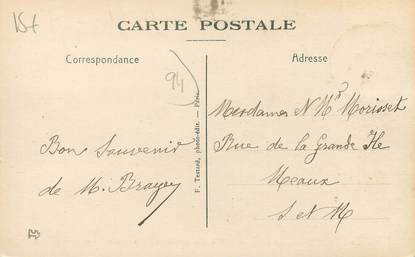 15t
CARTE POSTALE
Correspondance
Adresse
94
Bon Souvenir
de M. Brayey
F. Testard, photo-édit. - Paris
Mesdames N Mce Morisset
Rue de la Grande Ile
Meaux
S et M